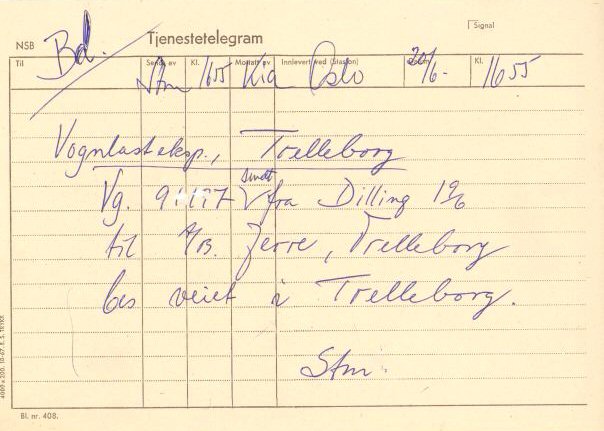 Signal
NSB Bd. Tjenestetelegram
Til Sendt av Kl. Mottatt av Innlevert ved (Stasjon) Datum Kl.
Stm 1655 Kia Oslo 20/6- 1655
Vognlasteksp., Trelleborg
sendt
Vg. 91197 fra Dilling 19/6
til A/B. Jerre, Trelleborg
bes veiet i Trelleborg.
Stm.
Bl. nr. 408.